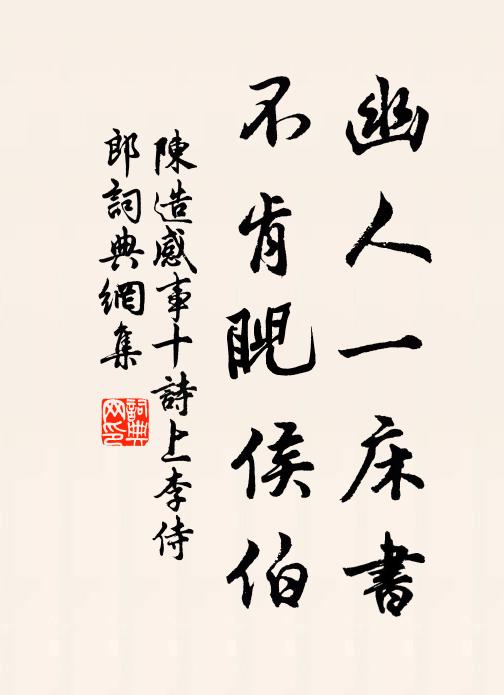 幽人一床書
不肯睨侯伯
陳造感事十詩上李侍
郎詞典網集
詞典
网印